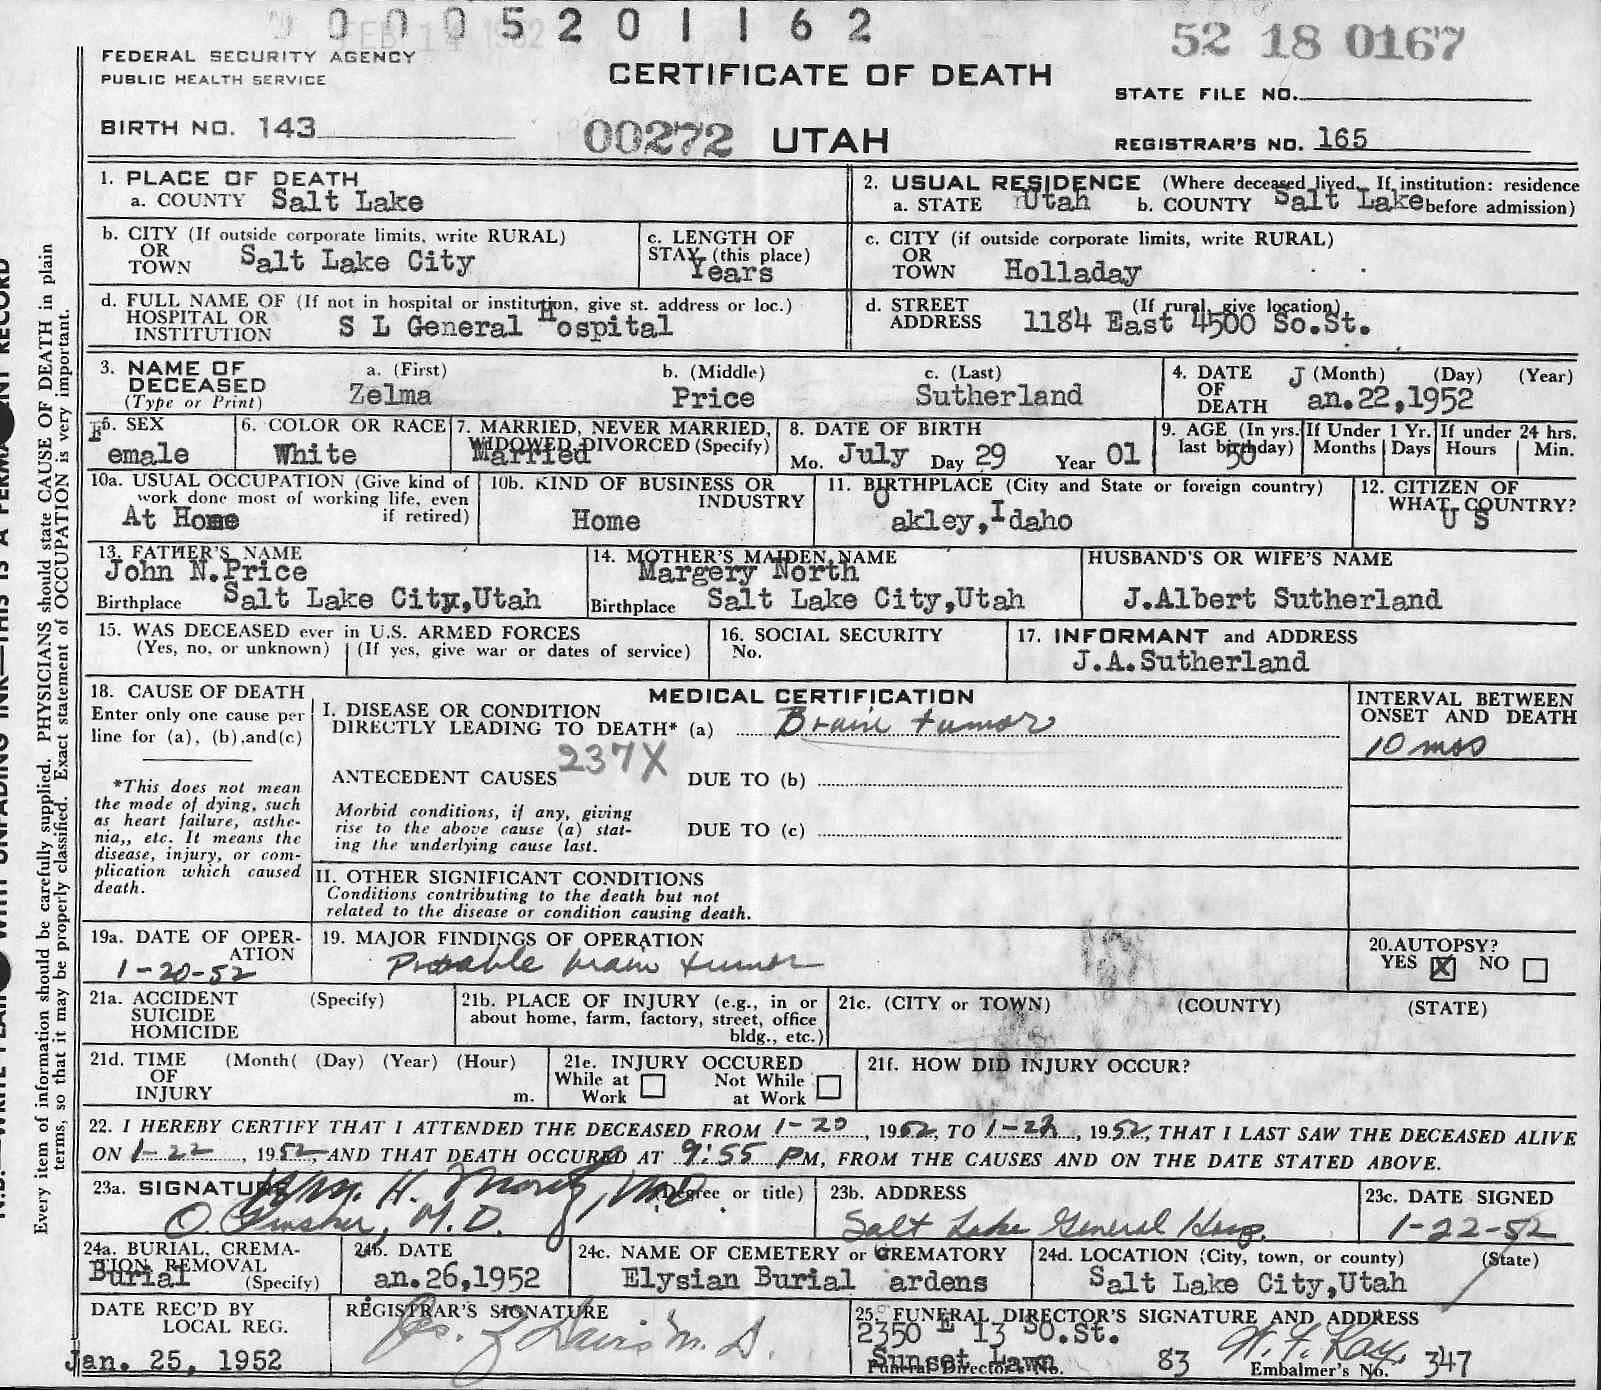 0 0 0 5 2 0 1 1 6 2
52 18 0167
FEDERAL SECURITY AGENCY
PUBLIC HEALTH SERVICE
CERTIFICATE OF DEATH
STATE FILE NO.
BIRTH NO. 143
00272 UTAH
REGISTRAR'S NO. 165
1. PLACE OF DEATH
a. COUNTY Salt Lake
2. USUAL RESIDENCE (Where deceased lived. If institution: residence
a. STATE Utah b. COUNTY Salt Lake before admission)
b. CITY (If outside corporate limits, write RURAL)
OR
TOWN Salt Lake City
c. LENGTH OF
STAY (this place)
Years
c. CITY (if outside corporate limits, write RURAL)
OR
TOWN Holladay
d. FULL NAME OF (If not in hospital or institution, give st. address or loc.)
HOSPITAL OR
INSTITUTION S L General Hospital
d. STREET (If rural, give location)
ADDRESS 1184 East 4500 So.St.
3. NAME OF
DECEASED
(Type or Print)
a. (First)
Zelma
b. (Middle)
Price
c. (Last)
Sutherland
4. DATE
OF
DEATH
(Month) (Day) (Year)
Jan.22,1952
5. SEX
Female
6. COLOR OR RACE
White
7. MARRIED, NEVER MARRIED,
WIDOWED, DIVORCED (Specify)
Married
8. DATE OF BIRTH
Mo. July Day 29 Year 01
9. AGE (In yrs.
last birthday)
50
If Under 1 Yr.
Months Days
If under 24 hrs.
Hours Min.
10a. USUAL OCCUPATION (Give kind of
work done most of working life, even
if retired)
At Home
10b. KIND OF BUSINESS OR
INDUSTRY
Home
11. BIRTHPLACE (City and State or foreign country)
Oakley,Idaho
12. CITIZEN OF
WHAT COUNTRY?
U S
13. FATHER'S NAME
John N.Price
Birthplace Salt Lake City,Utah
14. MOTHER'S MAIDEN NAME
Margery North
Birthplace Salt Lake City,Utah
HUSBAND'S OR WIFE'S NAME
J.Albert Sutherland
15. WAS DECEASED ever in U.S. ARMED FORCES
(Yes, no, or unknown) (If yes, give war or dates of service)
16. SOCIAL SECURITY
No.
17. INFORMANT and ADDRESS
J.A.Sutherland
18. CAUSE OF DEATH
Enter only one cause per
line for (a), (b),and(c)
*This does not mean
the mode of dying, such
as heart failure, asthe-
nia,, etc. It means the
disease, injury, or com-
plication which caused
death.
MEDICAL CERTIFICATION
I. DISEASE OR CONDITION
DIRECTLY LEADING TO DEATH* (a) Brain tumor
237X
ANTECEDENT CAUSES DUE TO (b)
Morbid conditions, if any, giving
rise to the above cause (a) stat-
ing the underlying cause last.
DUE TO (c)
INTERVAL BETWEEN
ONSET AND DEATH
10 mos
II. OTHER SIGNIFICANT CONDITIONS
Conditions contributing to the death but not
related to the disease or condition causing death.
19a. DATE OF OPER-
ATION
1-20-52
19. MAJOR FINDINGS OF OPERATION
Probable brain tumor
20.AUTOPSY?
YES X NO
21a. ACCIDENT (Specify)
SUICIDE
HOMICIDE
21b. PLACE OF INJURY (e.g., in or
about home, farm, factory, street, office
bldg., etc.)
21c. (CITY or TOWN) (COUNTY) (STATE)
21d. TIME (Month( (Day) (Year) (Hour)
OF
INJURY m.
21e. INJURY OCCURED
While at Work Not While at Work
21f. HOW DID INJURY OCCUR?
22. I HEREBY CERTIFY THAT I ATTENDED THE DECEASED FROM 1-20, 1952, TO 1-22, 1952, THAT I LAST SAW THE DECEASED ALIVE
ON 1-22, 1952, AND THAT DEATH OCCURED AT 9:55 PM, FROM THE CAUSES AND ON THE DATE STATED ABOVE.
23a. SIGNATURE (Degree or title)
Wm. H. M.D.
O. M.D.
23b. ADDRESS
Salt Lake General Hosp.
23c. DATE SIGNED
1-22-52
24a. BURIAL, CREMA-
TION REMOVAL
(Specify)
Burial
24b. DATE
an.26,1952
24c. NAME OF CEMETERY or CREMATORY
Elysian Burial Gardens
24d. LOCATION (City, town, or county) (State)
Salt Lake City,Utah
DATE REC'D BY
LOCAL REG.
Jan. 25, 1952
REGISTRAR'S SIGNATURE
Davis M.D.
25. FUNERAL DIRECTOR'S SIGNATURE AND ADDRESS
2350 E 13 SO.St.
Sunset Lawn
Funeral Director's No. 83
Embalmer's No. 347
Every item of information should be carefully supplied. PHYSICIANS should state CAUSE OF DEATH in plain
terms, so that it may be properly classified. Exact statement of OCCUPATION is very important.